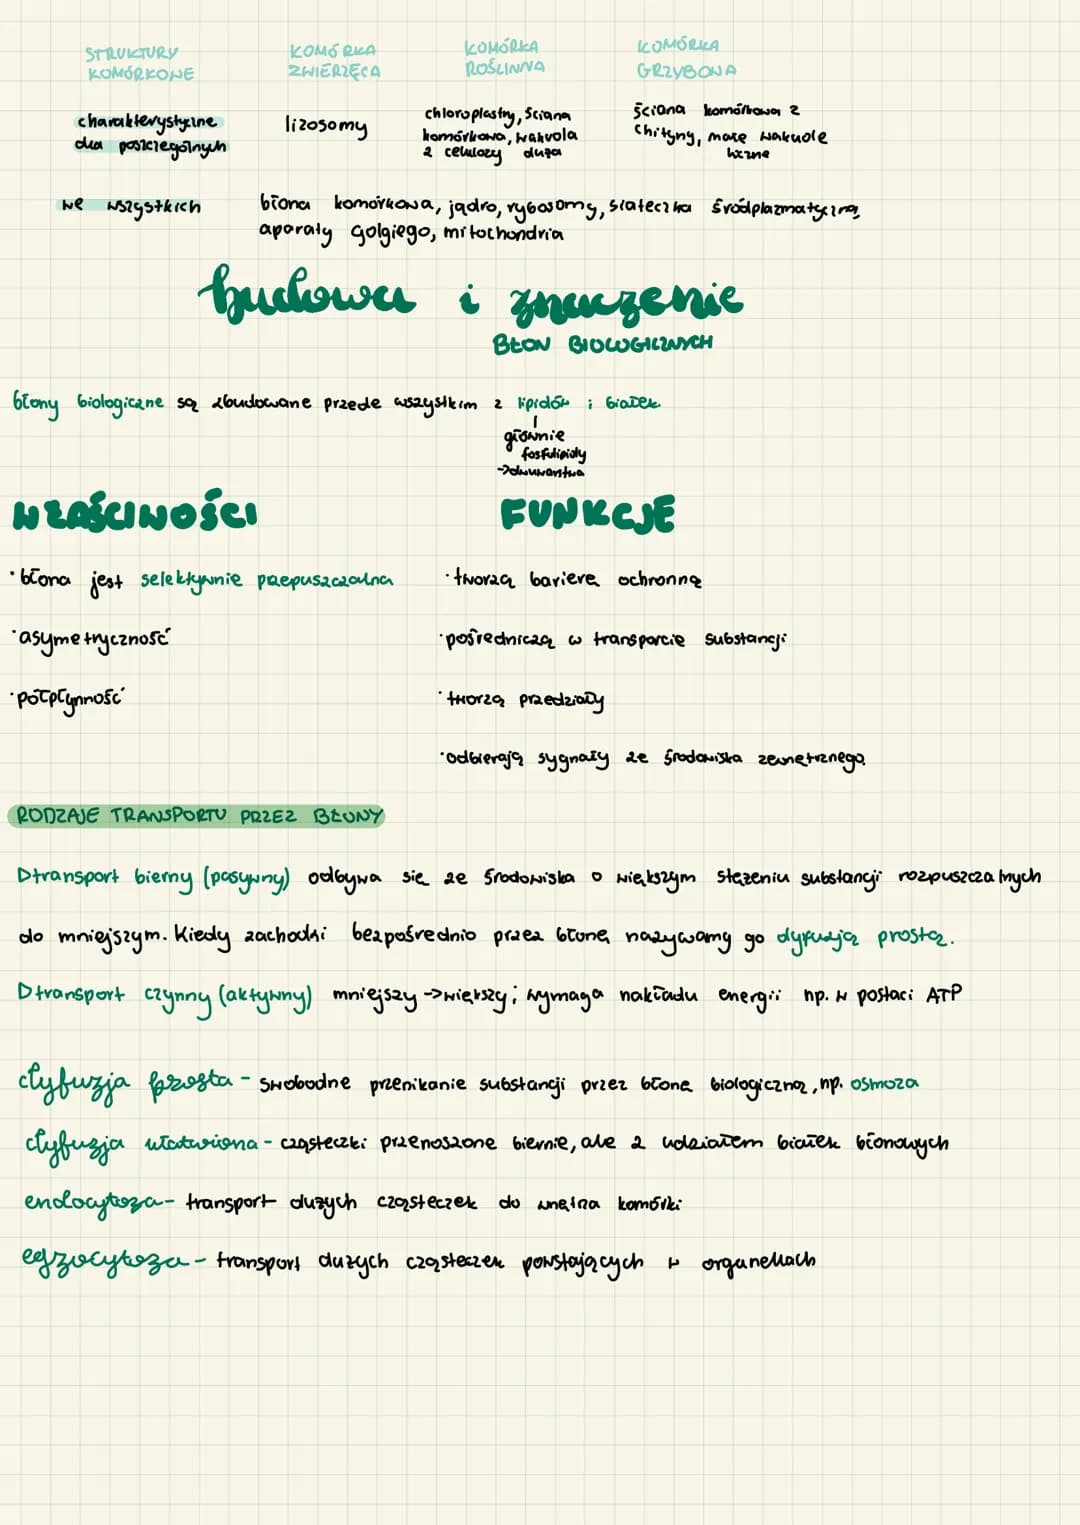 STRUKTURY KOMÓRKOWE
KOMÓRKA ZWIERZĘCA
KOMÓRKA ROŚLINNA
KOMÓRKA GRZYBOWA
charakterystyczne dla poszczególnych
lizosomy
chloroplasty, ściana komórkowa z celulozy, wakuola duża
ściana komórkowa z chityny, małe wakuole liczne
we wszystkich
błona komórkowa, jądro, rybosomy, siateczka śródplazmatyczna,
aparaty Golgiego, mitochondria
budowa i znaczenie
BŁON BIOLOGICZNYCH
błony biologiczne są zbudowane przede wszystkim z lipidów i białek
głównie
fosfolipidy
->dwuwarstwa
WŁAŚCIWOŚCI
FUNKCJE
·błona jest selektywnie przepuszczalna
·tworzą barierę ochronną
·asymetryczność
·pośredniczą w transporcie substancji
·półpłynność
·tworzą przedziały
·odbierają sygnały ze środowiska zewnętrznego
RODZAJE TRANSPORTU PRZEZ BŁONY
▷transport bierny (pasywny) odbywa się ze środowiska o większym stężeniu substancji rozpuszczalnych
do mniejszym. Kiedy zachodzi bezpośrednio przez błonę, nazywamy go dyfuzją prostą.
▷transport czynny (aktywny) mniejszy ->większy; wymaga nakładu energii np. w postaci ATP
dyfuzja prosta - swobodne przenikanie substancji przez błonę biologiczną, np. osmoza
dyfuzja ułatwiona - cząsteczki przenoszone biernie, ale z udziałem białek błonowych
endocytoza - transport dużych cząsteczek do wnętrza komórki
egzocytoza - transport dużych cząsteczek powstających w organellach